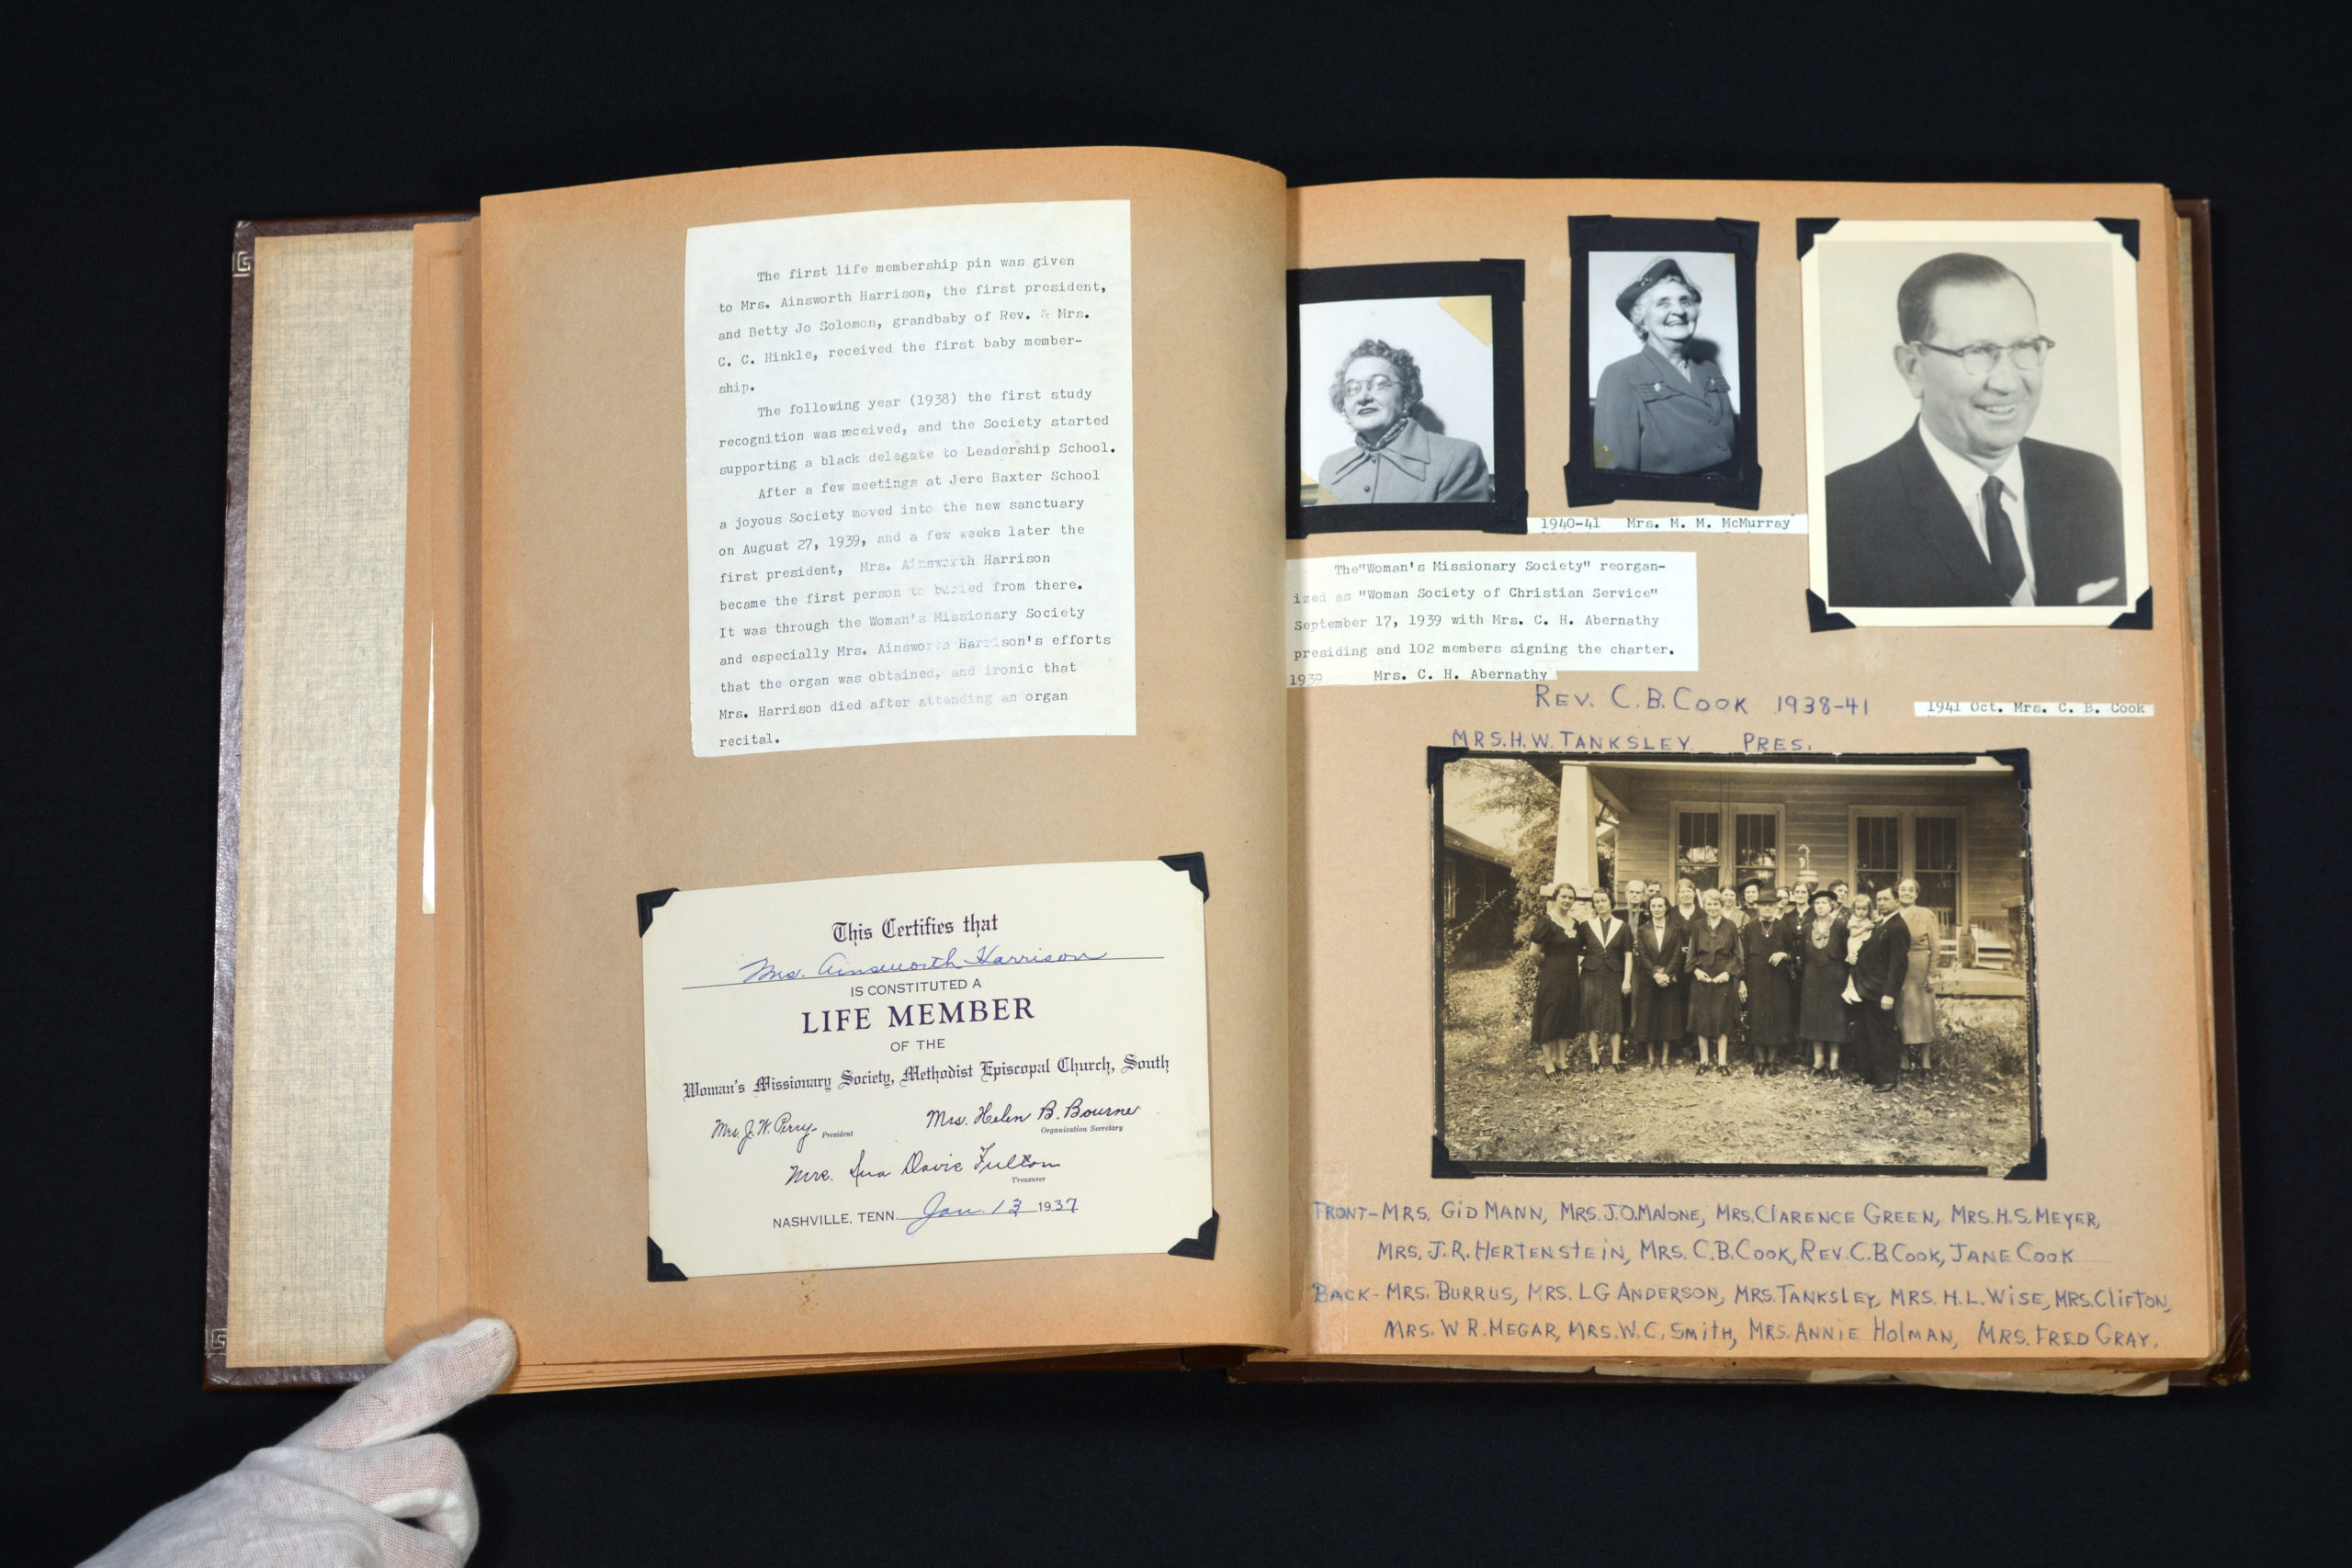 The first life membership pin was given
to Mrs. Ainsworth Harrison, the first president,
and Betty Jo Solomon, grandbaby of Rev. & Mrs.
C. C. Hinkle, received the first baby member-
ship.
The following year (1938) the first study
recognition was received, and the Society started
supporting a black delegate to Leadership School.
After a few meetings at Jere Baxter School
a joyous Society moved into the new sanctuary
on August 27, 1939, and a few weeks later the
first president, Mrs. Ainsworth Harrison
became the first person to buried from there.
It was through the Woman's Missionary Society
and especially Mrs. Ainsworth Harrison's efforts
that the organ was obtained, and ironic that
Mrs. Harrison died after attending an organ
recital.
This Certifies that
Mrs. Ainsworth Harrison
IS CONSTITUTED A
LIFE MEMBER
OF THE
Woman's Missionary Society, Methodist Episcopal Church, South
Mrs. J. W. Perry President
Mrs. Helen B. Bourne
Organization Secretary
Mrs. Ina Davis Fulton
Treasurer
NASHVILLE, TENN. Jan. 13 1937
1940-41 Mrs. M. M. McMurray
The"Woman's Missionary Society" reorgan-
ized as "Woman Society of Christian Service"
September 17, 1939 with Mrs. C. H. Abernathy
presiding and 102 members signing the charter.
1939 Mrs. C. H. Abernathy
REV. C. B. COOK 1938-41
1941 Oct. Mrs. C. B. Cook
MRS. H. W. TANKSLEY PRES.
FRONT- MRS. GID MANN, MRS. J.O. MALONE, MRS. CLARENCE GREEN, MRS. H.S. MEYER,
MRS. J. R. HERTENSTEIN, MRS. C.B. COOK, REV. C.B. COOK, JANE COOK
BACK- MRS. BURRUS, MRS. L G ANDERSON, MRS. TANKSLEY, MRS. H. L. WISE, MRS. CLIFTON,
MRS. W R. MEGAR, MRS. W. C. SMITH, MRS. ANNIE HOLMAN, MRS. FRED GRAY.